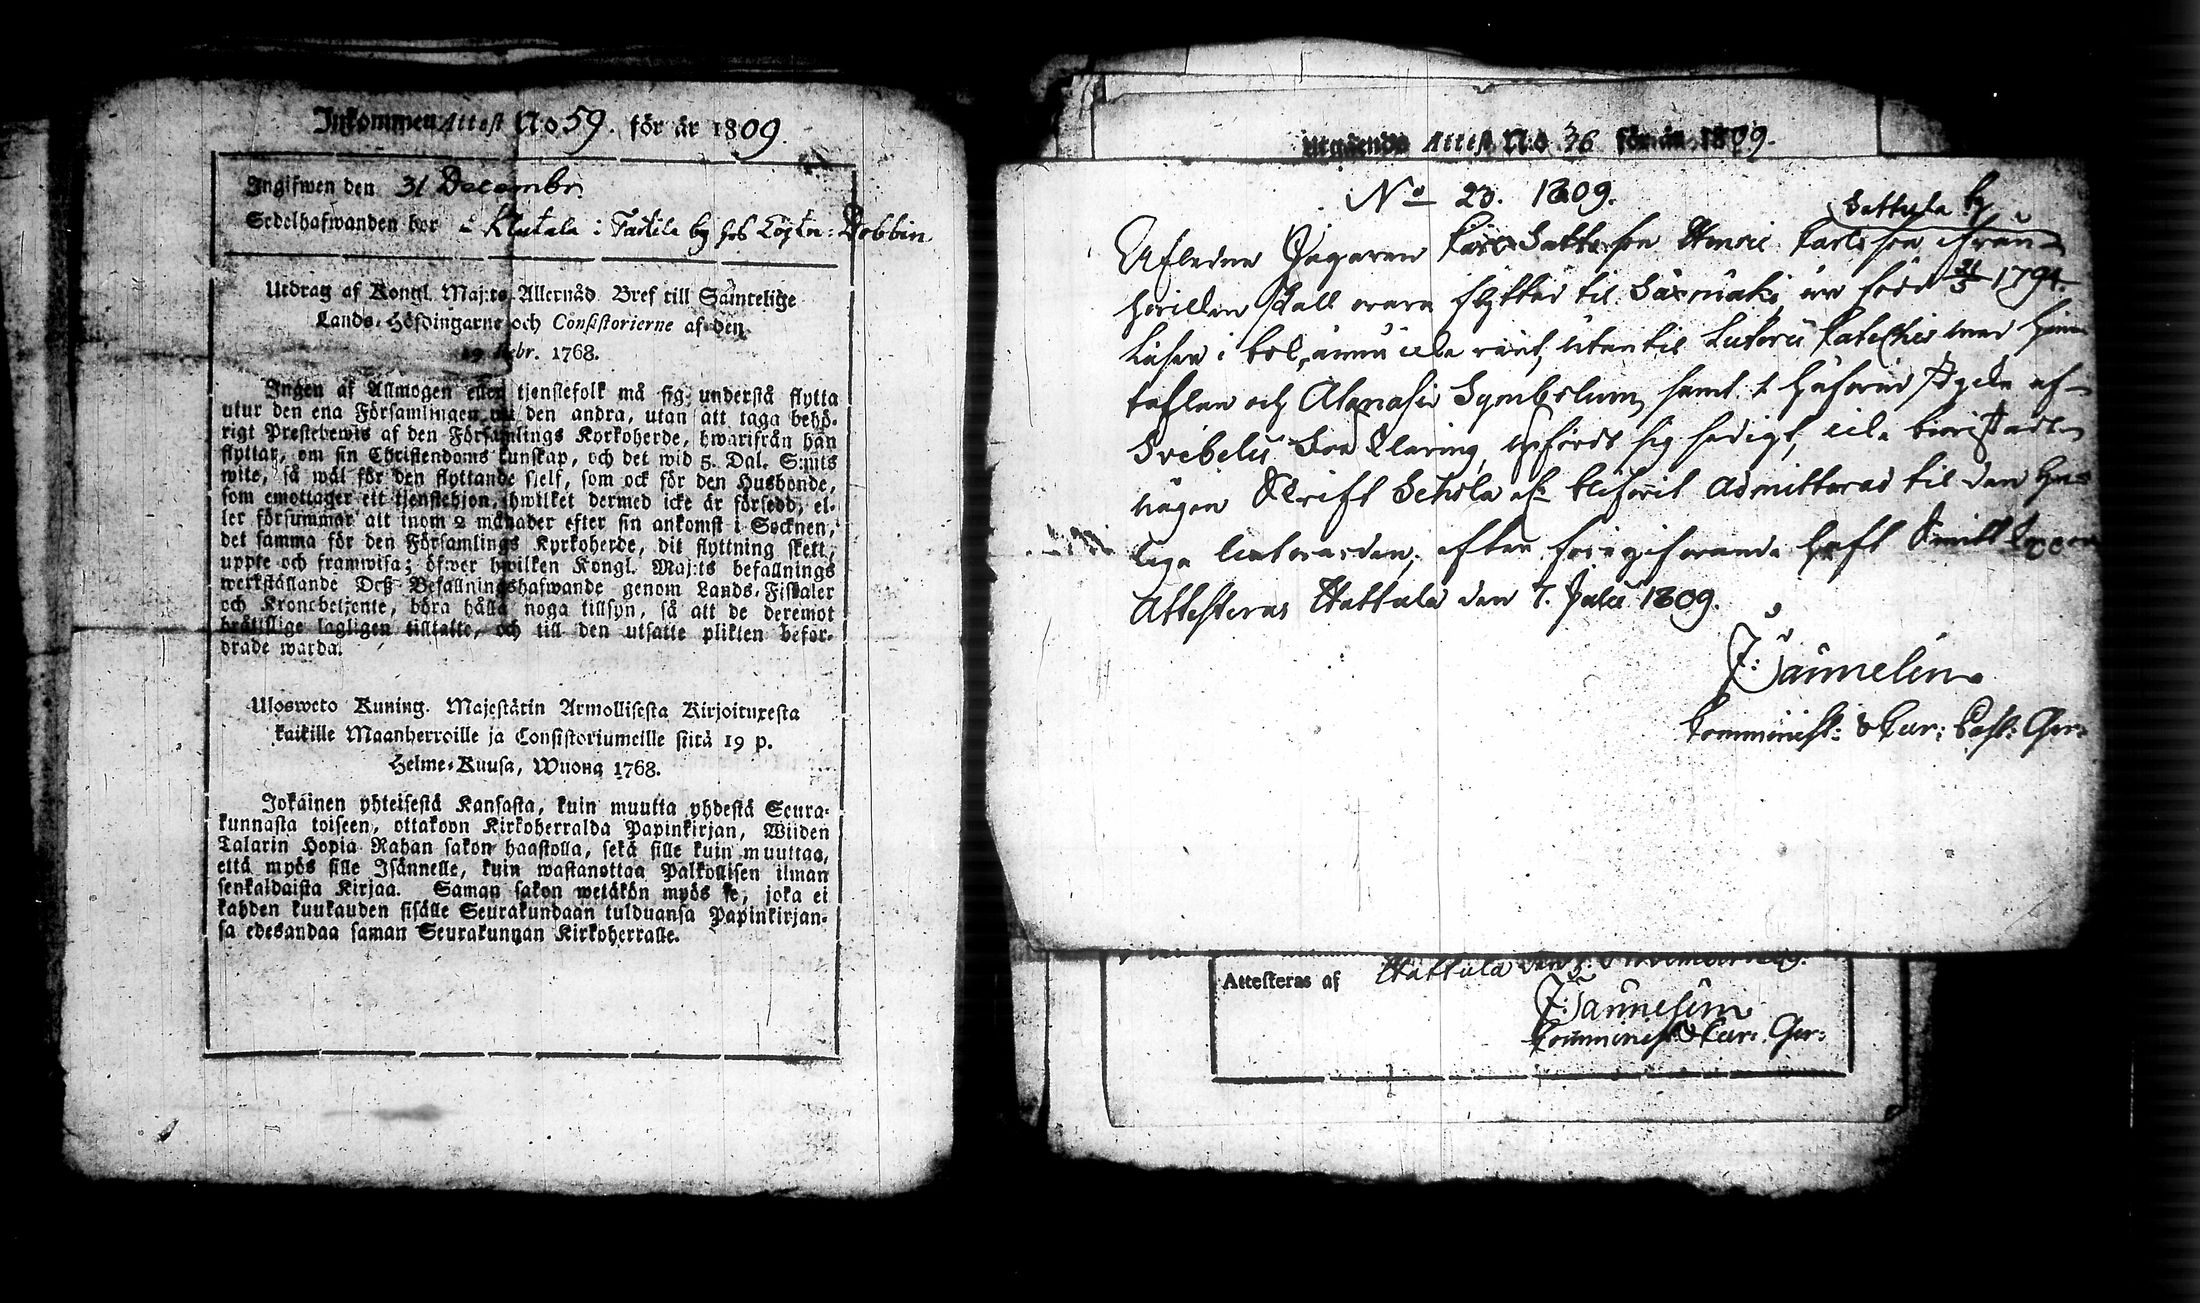 Inkommen Attest No 59. för år 1809.
Ingifwen den 31 Decembr.
Sedelhafwanden bor i Klutala i by hos
Utdrag af Kongl. Maj:ts Allernåd. Bref till Samtelige
Lands-Höfdingarne och Consistorierne af den
19 Febr. 1768.
Ingen af Allmogen eller tjenstefolk må sig understå flytta
utur den ena Församlingen til den andra, utan att taga behö-
rigt Prestebewis af den Församlings Kyrkoherde, hwarifrån han
flyttar, om sin Christendoms kunskap, och det wid 5. Dal. S:mts
wite, så wäl för den flyttande sjelf, som ock för den Husbonde,
som emottager ett tjenstehjon, hwilket dermed icke är försedd, el-
ler försummar att inom 2 månader efter sin ankomst i Socknen,
det samma för den Församlings Kyrkoherde, dit flyttning skett,
uppte och framwisa; öfwer hwilken Kongl. Maj:ts befallnings
werkställande Deß Befallningshafwande genom Lands-Fiskaler
och Kronobetjente, böra hålla noga tillsyn, så att de deremot
brättslige lagligen tilltalte, och till den utsatte plikten befor-
drade warda.
Ulosweto Kuning. Majestätin Armollisesta Kirjoituxesta
kaikille Maanherroille ja Consistoriumeille siitä 19 p.
Helme-Kuusa, Wuona 1768.
Jokainen yhteisestä Kansasta, kuin muutta yhdestä Seura-
kunnasta toiseen, ottakoon Kirkoherralda Papinkirjan, Wiiden
Talarin Hopia Rahan sakon haastolla, sekä sille kuin muuttaa,
että myös sille Isännelle, kuin wastanottaa Palkollisen ilman
senkaldaista Kirjaa. Saman sakon wetäkön myös se, joka ei
kahden kuukauden sisälle Seurakundaan tulduansa Papinkirjan-
sa edesandaa saman Seurakunnan Kirkoherralle.
Utgående Attest No 36 för år 1809.
No 23. 1809.
Sattula by
Aflidne Jägaren son Henric Carlsson ifrån
hvilken skall vara flyttad til Säxmäki är född 1794.
Läser i bok ännu illa rent, utantil Lutheri Catechis med Hus-
taflan och Atanasii Symbolum, samt stycke af
Svebelii förklaring, upfördt sig sedigt,
någon Skrift Schola admitteras til den
liga Nattvarden; efter föregifvande haft
Attesteras Hattula den 7. Julii 1809.
J: Vannelin
Comminist: & Cur: Past: Ger:
Attesteras af Hattula den
J: Vannelin
Comminist & Cur: Ger: